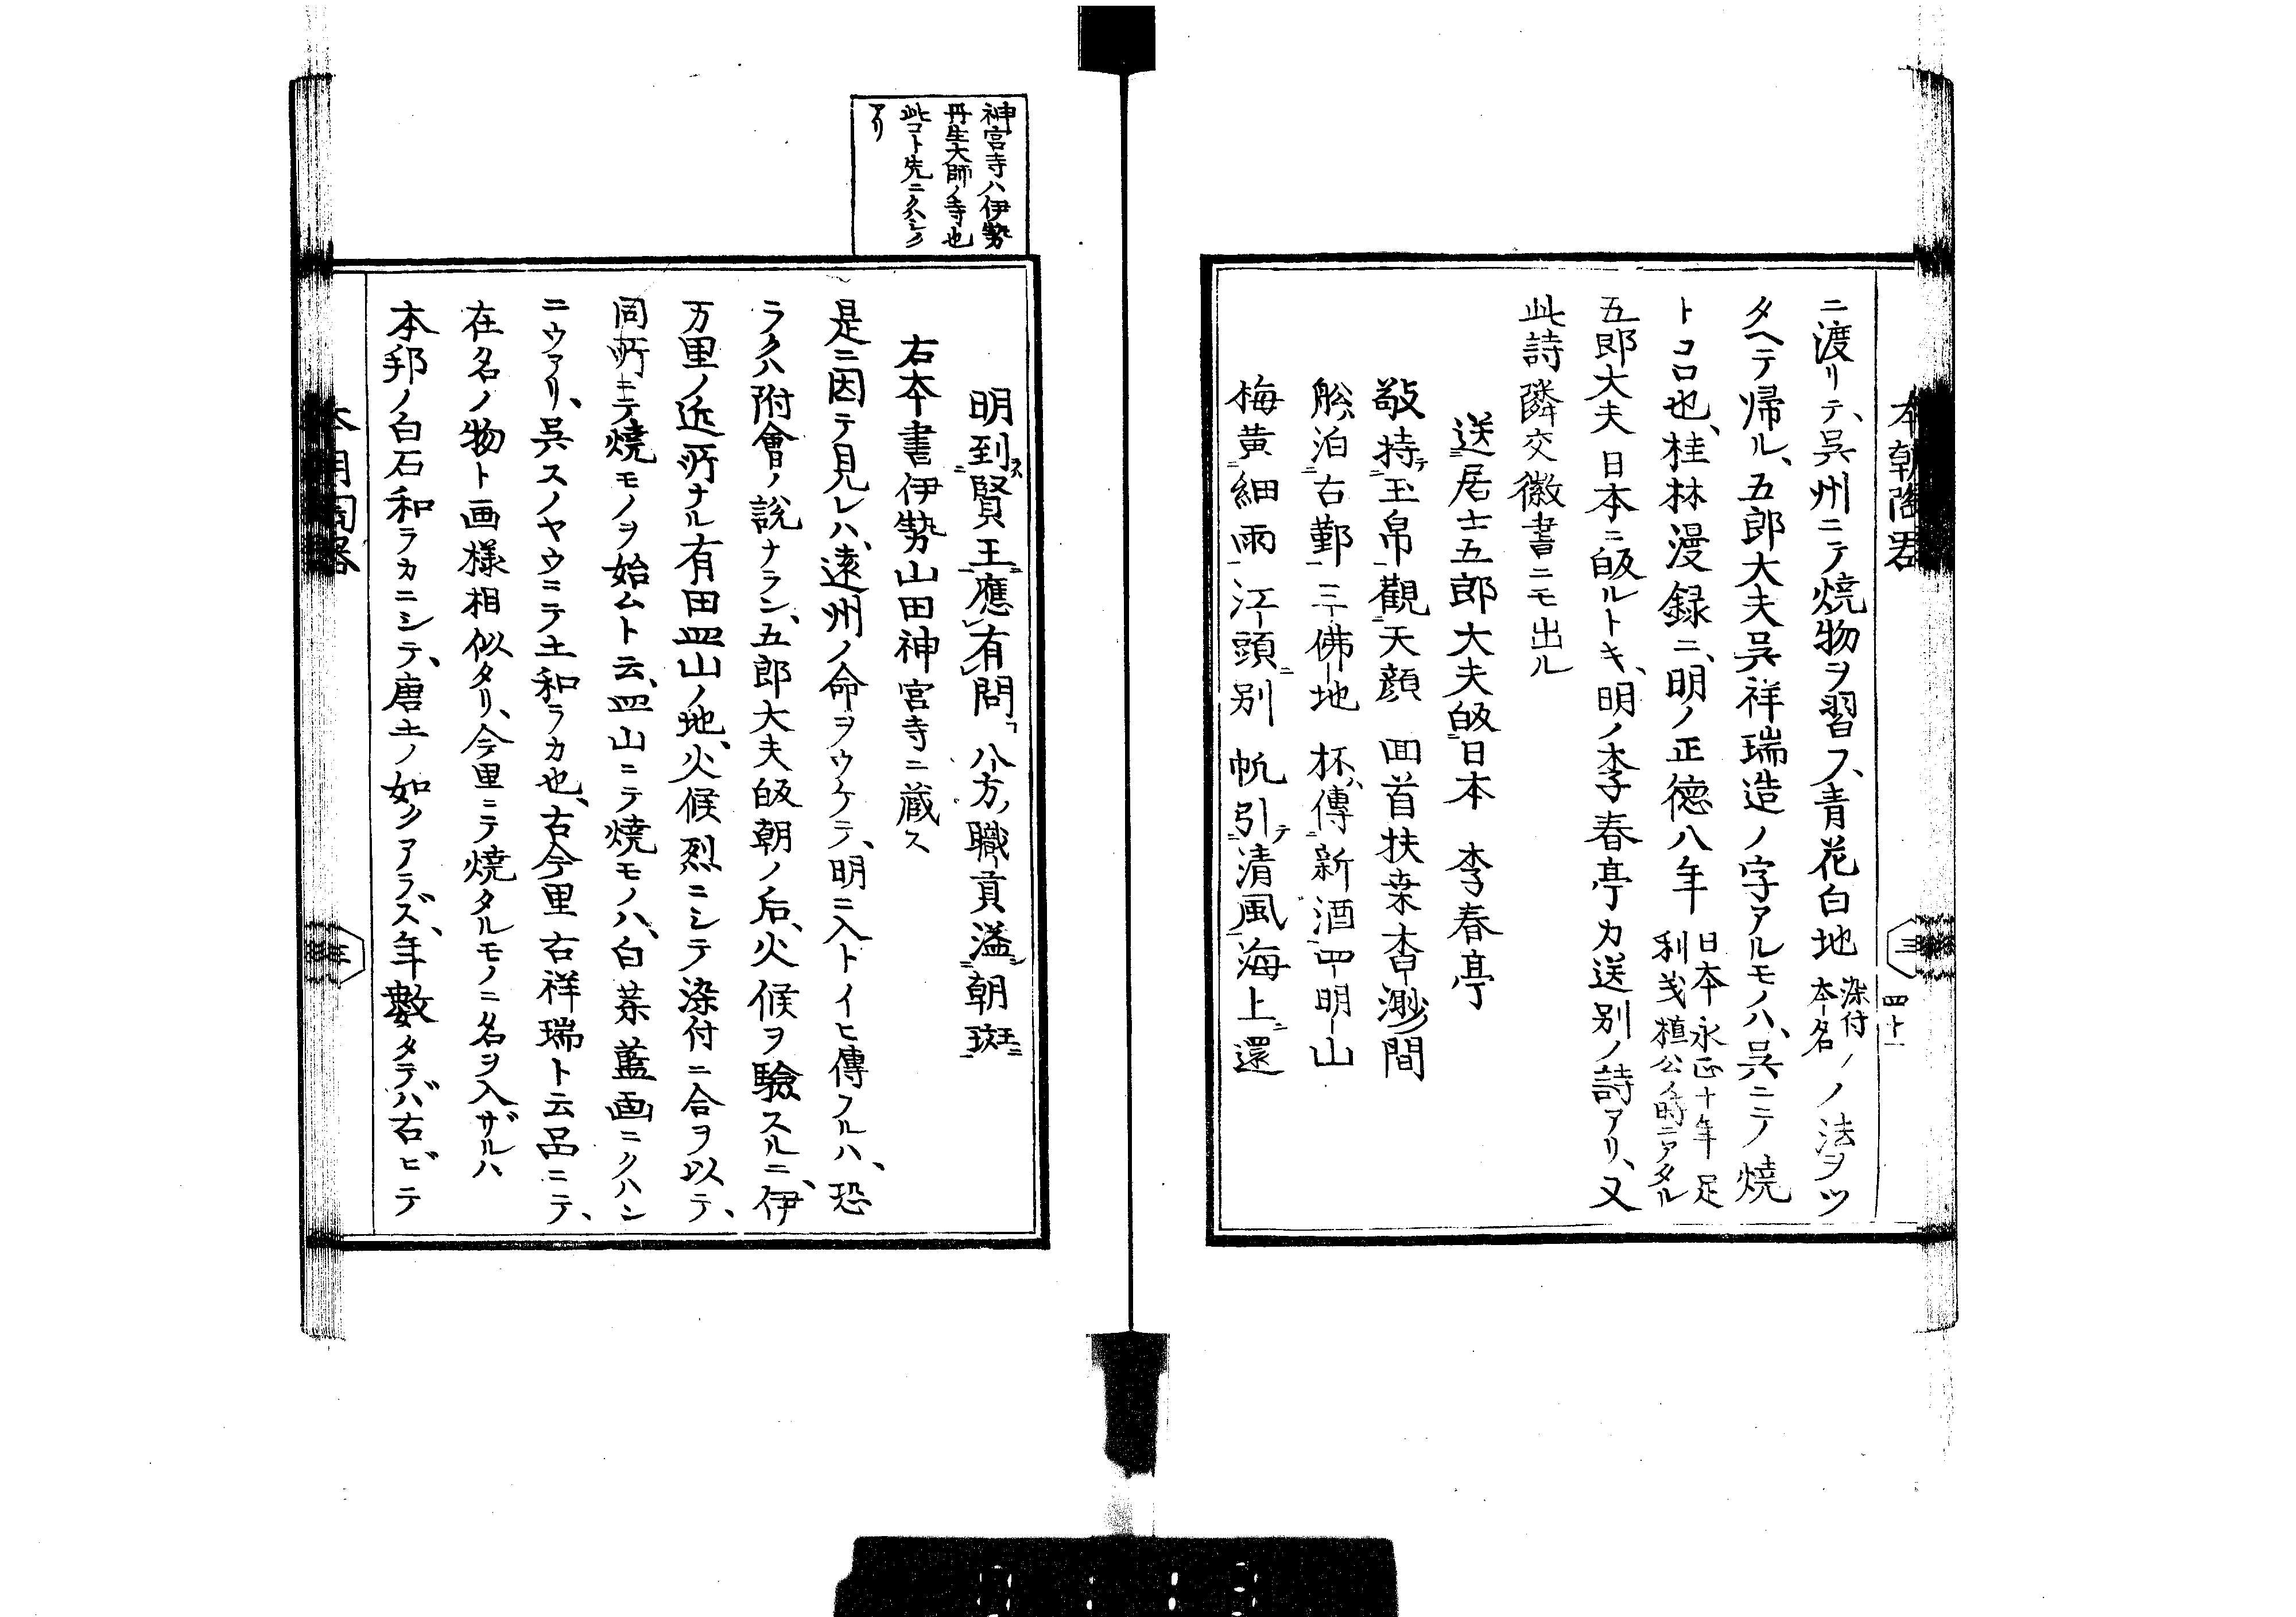 本朝陶器
三 四十一
ニ渡リテ、呉州ニテ焼物ヲ習フ、青花白地染付ノ本名ノ法ヲツ
タヘテ帰ル、五郎大夫呉祥瑞造ノ字アルモノハ、呉ニテノ焼
トコロ也、桂林漫録ニ、明ノ正徳八年日本永正十年足利義植公ノ時ニアタル
五郎大夫日本ニ皈ルトキ、明ノ李春亭カ送別ノ詩アリ、又
此詩隣交徴書ニモ出ル
送居士五郎大夫皈日本 李春亭
敬持テ玉帛觀天顔 回首扶桒杳渺間
舩泊右鄞三佛地 杯傳新酒四明山
梅黄細雨江頭別 帆引テ清風海上還
神宮寺ハ伊勢
丹生大師ノ寺也
此コト先ニクハシク
アリ
明到賢王應有問 八方ノ職貢溢朝班
右本書伊勢山田神宮寺ニ蔵ス
是ニ因テ見レハ、遠州ノ命ヲウケテ、明ニ入トイヒ傳フルハ、恐
ラクハ附會ノ説ナラン、五郎大夫皈朝ノ后、火候ヲ驗スルニ、伊
万里ノ近所ナル有田皿山ノ地、火候烈ニシテ染付ニ合ヲ以テ、
同所ニテ焼モノヲ始ムト云、皿山ニテ焼モノハ、白茶藍画ニクハン
ニウアリ、呉スノヤウニテ土和ラカ也、古今里古祥瑞ト云品ニテ、
在名ノ物ト画様相似タリ、今里ニテ焼タルモノニ名ヲ入ザルハ
本邦ノ白石和ラカニシテ、唐土ノ如クアラズ、年數タテバ古ビテ
本朝陶器
三